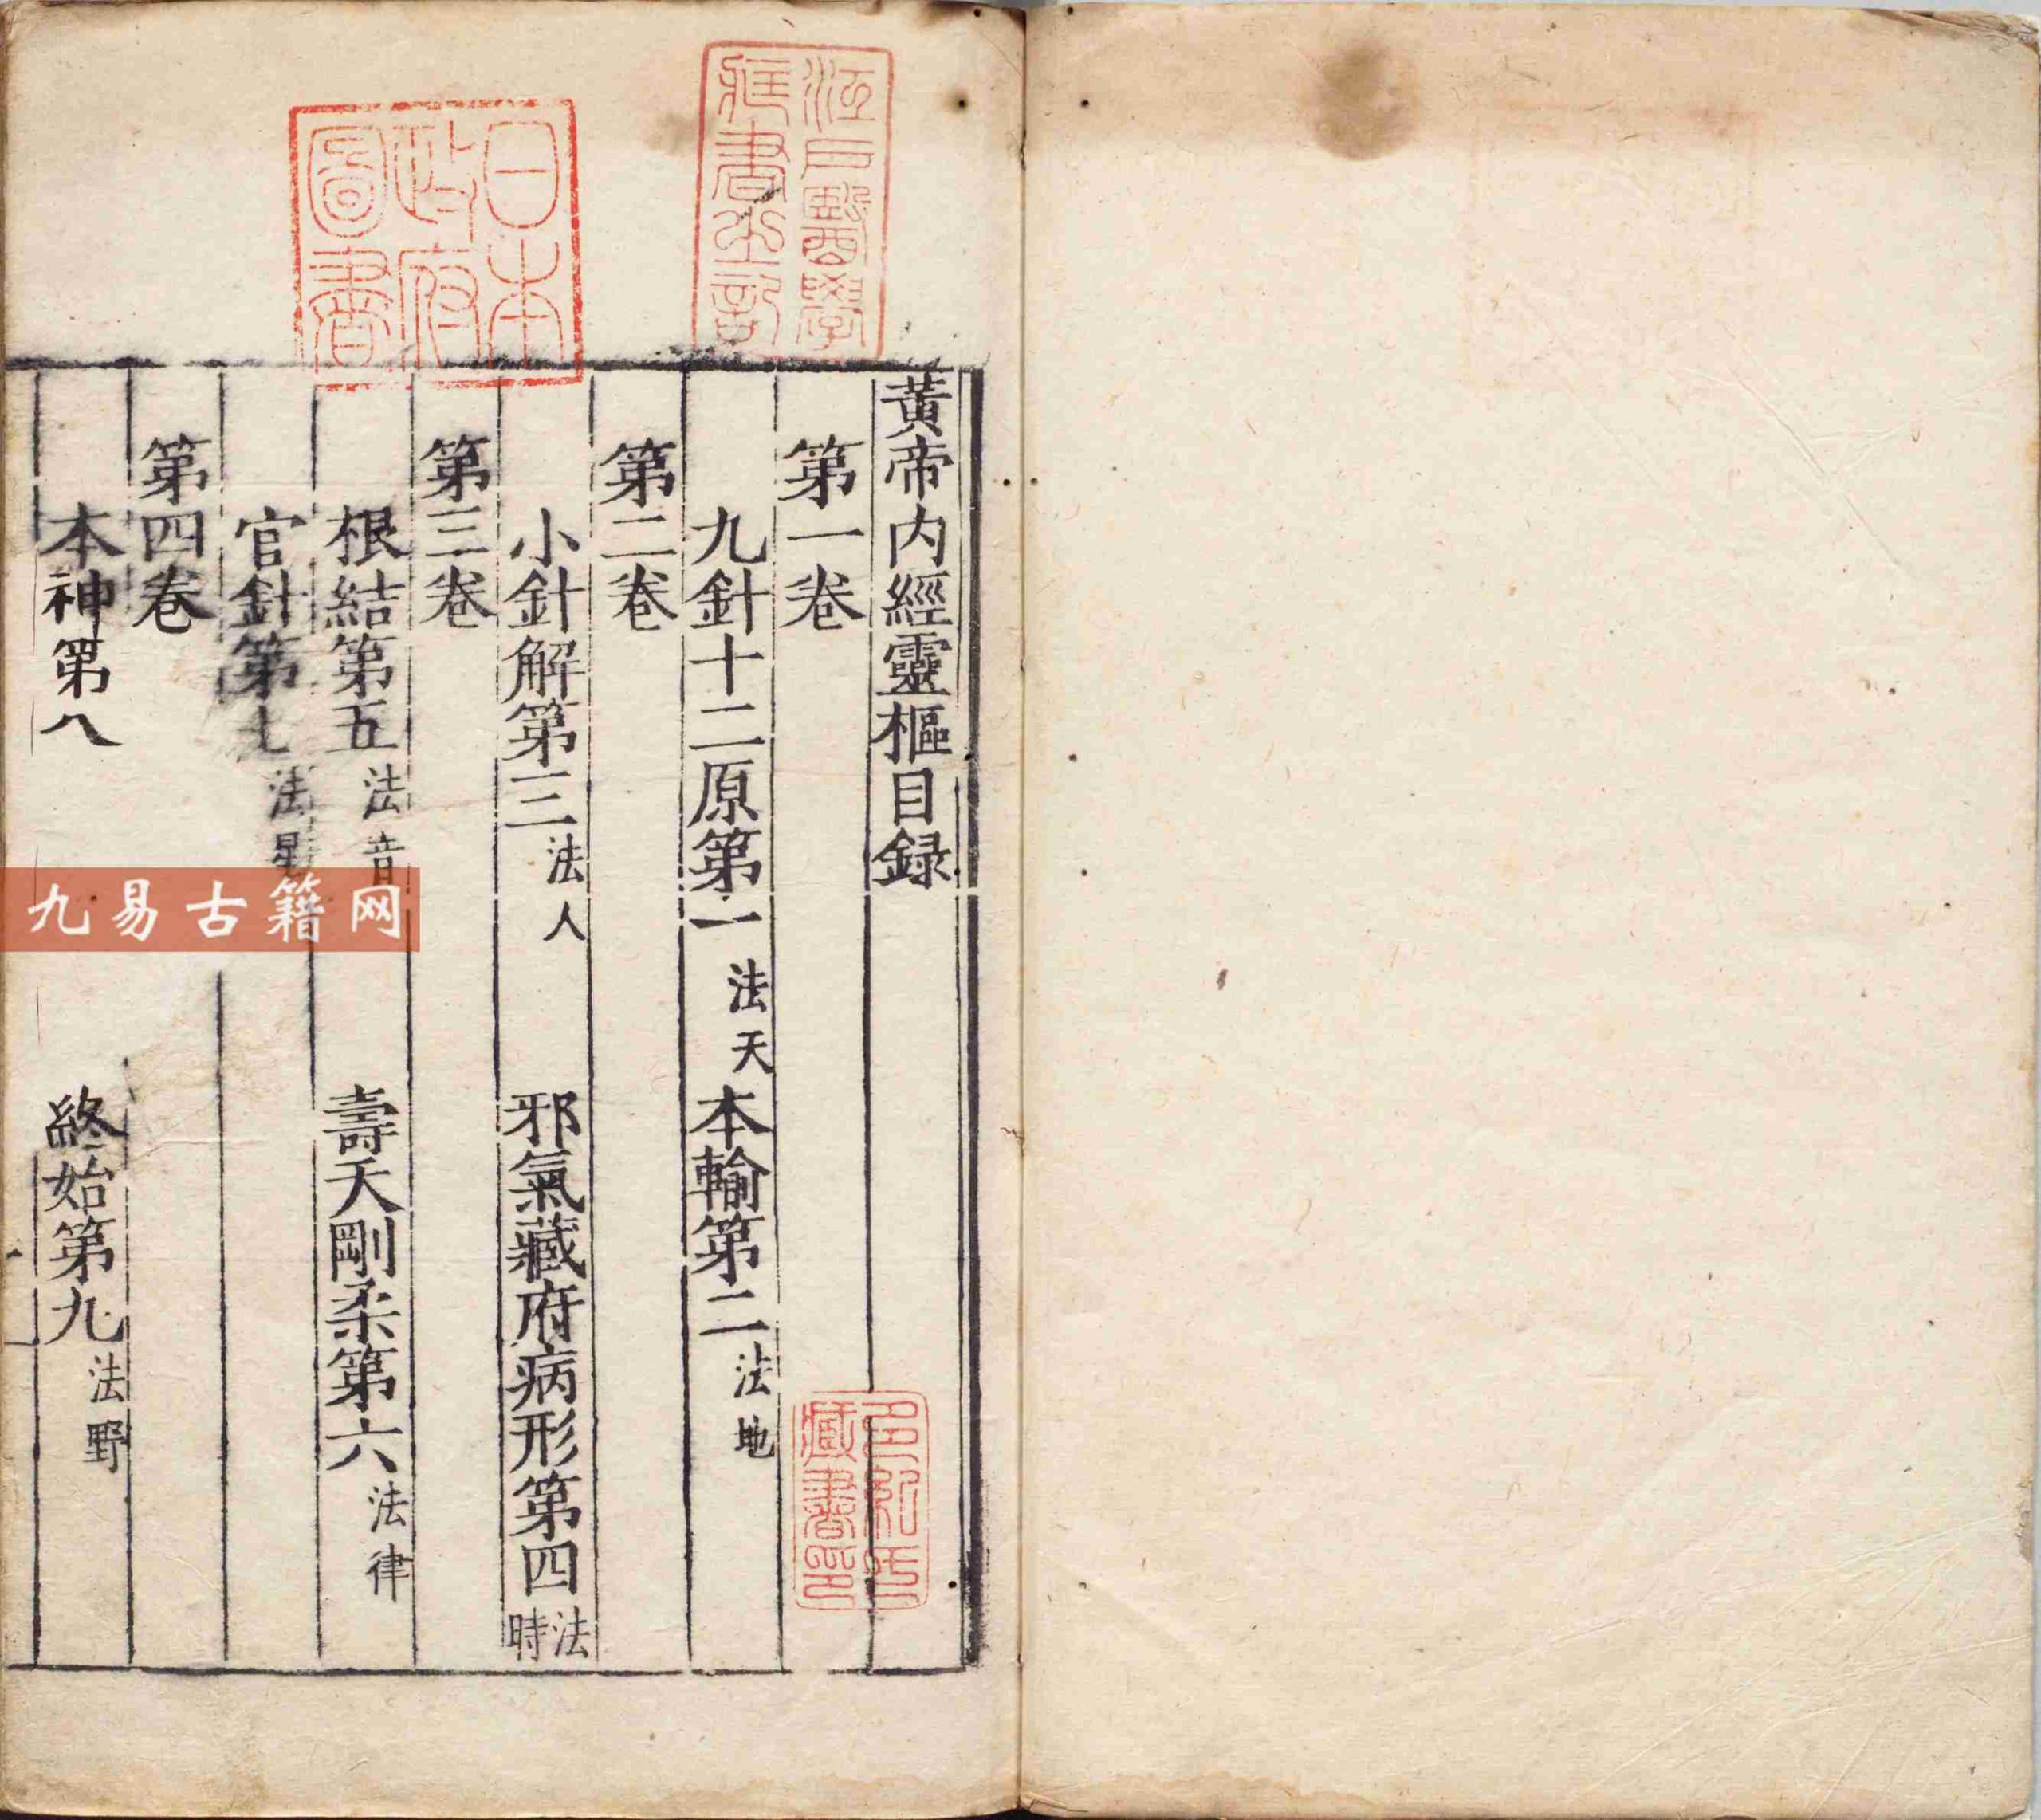 黃帝内經靈樞目録
第一卷
九針十二原第一 法天 本輸第二 法地
第二卷
小針解第三 法人 邪氣藏府病形第四 法時
第三卷
根結第五 法音 壽夭剛柔第六 法律
官針第七 法星
第四卷
本神第八 終始第九 法野
江戸醫學
藏書之記
日本
政府
圖書
藏書印
九易古籍网